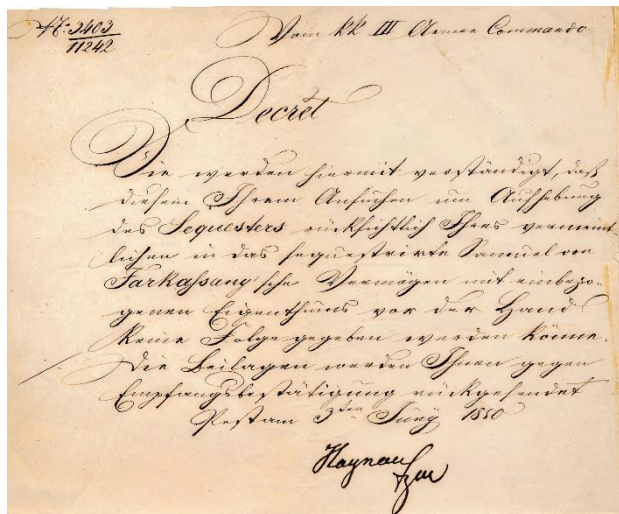 № 3403
11242
Vom kk III Armee Commando
Decret
Sie werden hiermit verständigt, daß
diesem Ihrem Ansuchen um Aufhebung
des Sequesters rücksichtlich Ihres vermeint
lichen in das sequestrirte Samuel von
Farkassany'sche Vermögen mit einbezo-
genen Eigenthums vor der Hand
keine Folge gegeben werden könne.
Die Beilagen werden Ihnen gegen
Empfangsbestätigung rückgesendet
Pest am 3ten Juny 1850
Haynau